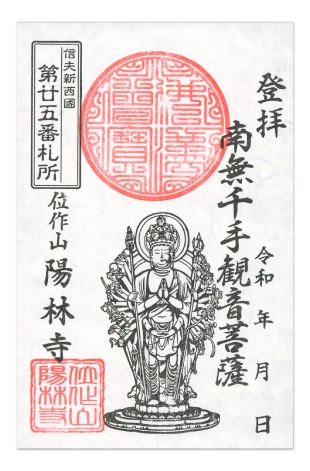 登拝
南無千手観音菩薩
令和 年 月 日
信夫新西國
第廿五番札所
位作山
陽林寺
佛法僧寶
位作山
陽林寺